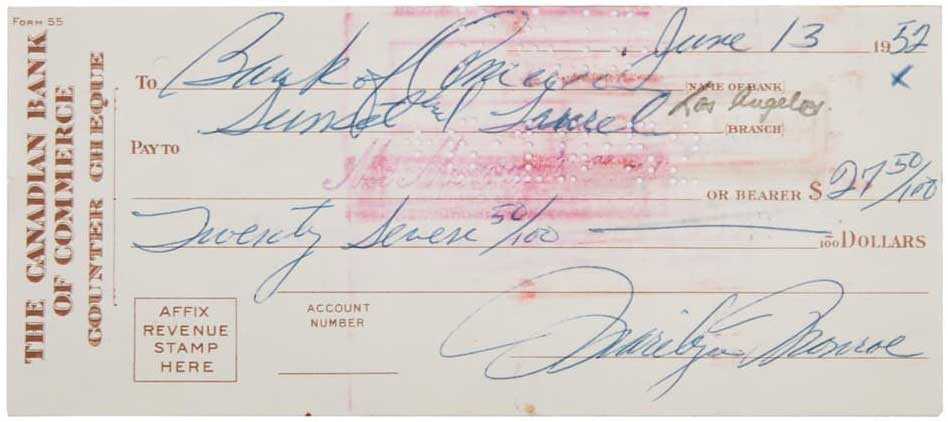 FORM 55
THE CANADIAN BANK
OF COMMERCE
COUNTER CHEQUE
June 13 1952
TO Bank of America (NAME OF BANK) x
Sunset & Laurel Los Angeles. (BRANCH)
PAY TO
OR BEARER $ 27 50/100
Twenty Seven 50/100 /100 DOLLARS
AFFIX
REVENUE
STAMP
HERE
ACCOUNT
NUMBER
Marilyn Monroe